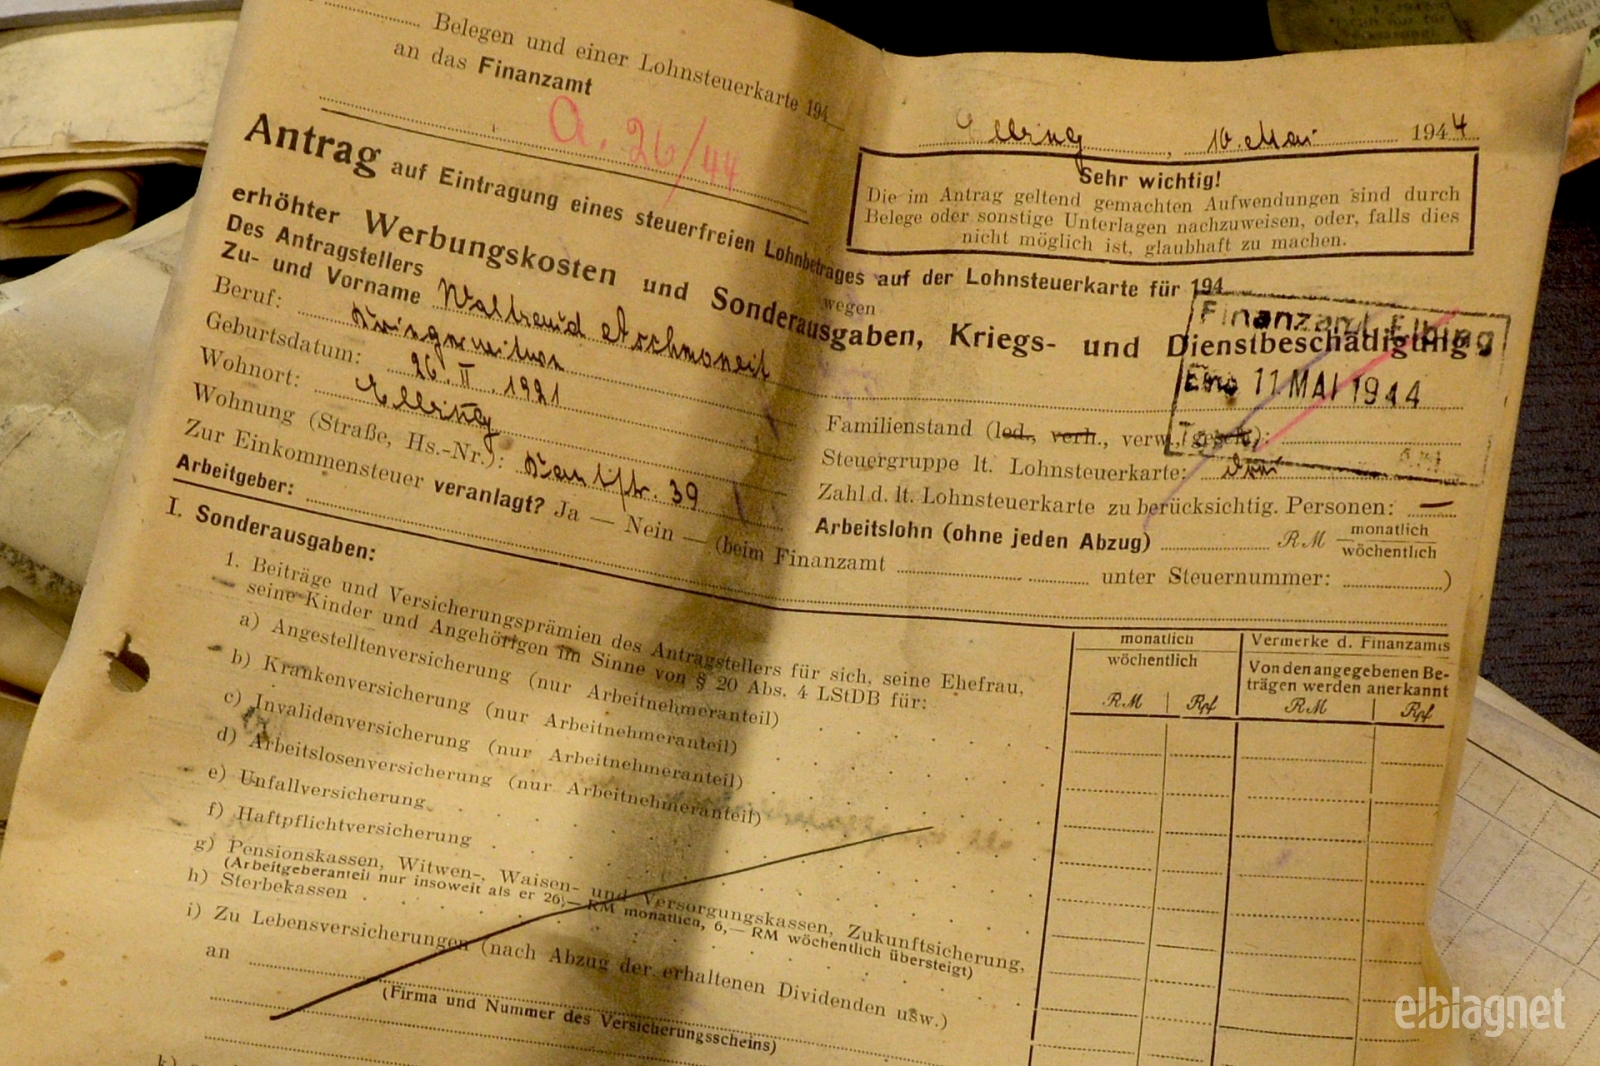 Belegen und einer Lohnsteuerkarte 194
an das Finanzamt
A. 26/44
Elbing, 10. Mai 1944
Sehr wichtig!
Die im Antrag geltend gemachten Aufwendungen sind durch
Belege oder sonstige Unterlagen nachzuweisen, oder, falls dies
nicht möglich ist, glaubhaft zu machen.
Antrag auf Eintragung eines steuerfreien Lohnbetrages auf der Lohnsteuerkarte für 194
wegen
erhöhter Werbungskosten und Sonderausgaben, Kriegs- und Dienstbeschädigung
Finanzamt Elbing
Eing 11 MAI 1944
Des Antragstellers
Zu- und Vorname Waltraud
Beruf:
Geburtsdatum: 26. II. 1921
Wohnort: Elbing
Wohnung (Straße, Hs.-Nr.): 39
Zur Einkommensteuer veranlagt? Ja — Nein — (beim Finanzamt unter Steuernummer: )
Arbeitgeber:
Familienstand (led., verh., verw., gesch.):
Steuergruppe lt. Lohnsteuerkarte: drei
Zahl d. lt. Lohnsteuerkarte zu berücksichtig. Personen: —
Arbeitslohn (ohne jeden Abzug) RM monatlich
wöchentlich
I. Sonderausgaben:
1. Beiträge und Versicherungsprämien des Antragstellers für sich, seine Ehefrau,
seine Kinder und Angehörigen im Sinne von § 20 Abs. 4 LStDB für:
a) Angestelltenversicherung (nur Arbeitnehmeranteil)
b) Krankenversicherung (nur Arbeitnehmeranteil)
c) Invalidenversicherung (nur Arbeitnehmeranteil)
d) Arbeitslosenversicherung (nur Arbeitnehmeranteil)
e) Unfallversicherung
f) Haftpflichtversicherung
g) Pensionskassen, Witwen-, Waisen- und Versorgungskassen, Zukunftsicherung,
(Arbeitgeberanteil nur insoweit als er 26,— RM monatlich, 6,— RM wöchentlich übersteigt)
h) Sterbekassen
i) Zu Lebensversicherungen (nach Abzug der erhaltenen Dividenden usw.)
an
(Firma und Nummer des Versicherungsscheins)
k)
monatlich
wöchentlich
RM Rpf
Vermerke d. Finanzamts
Von den angegebenen Be-
trägen werden anerkannt
RM Rpf
elblagnet